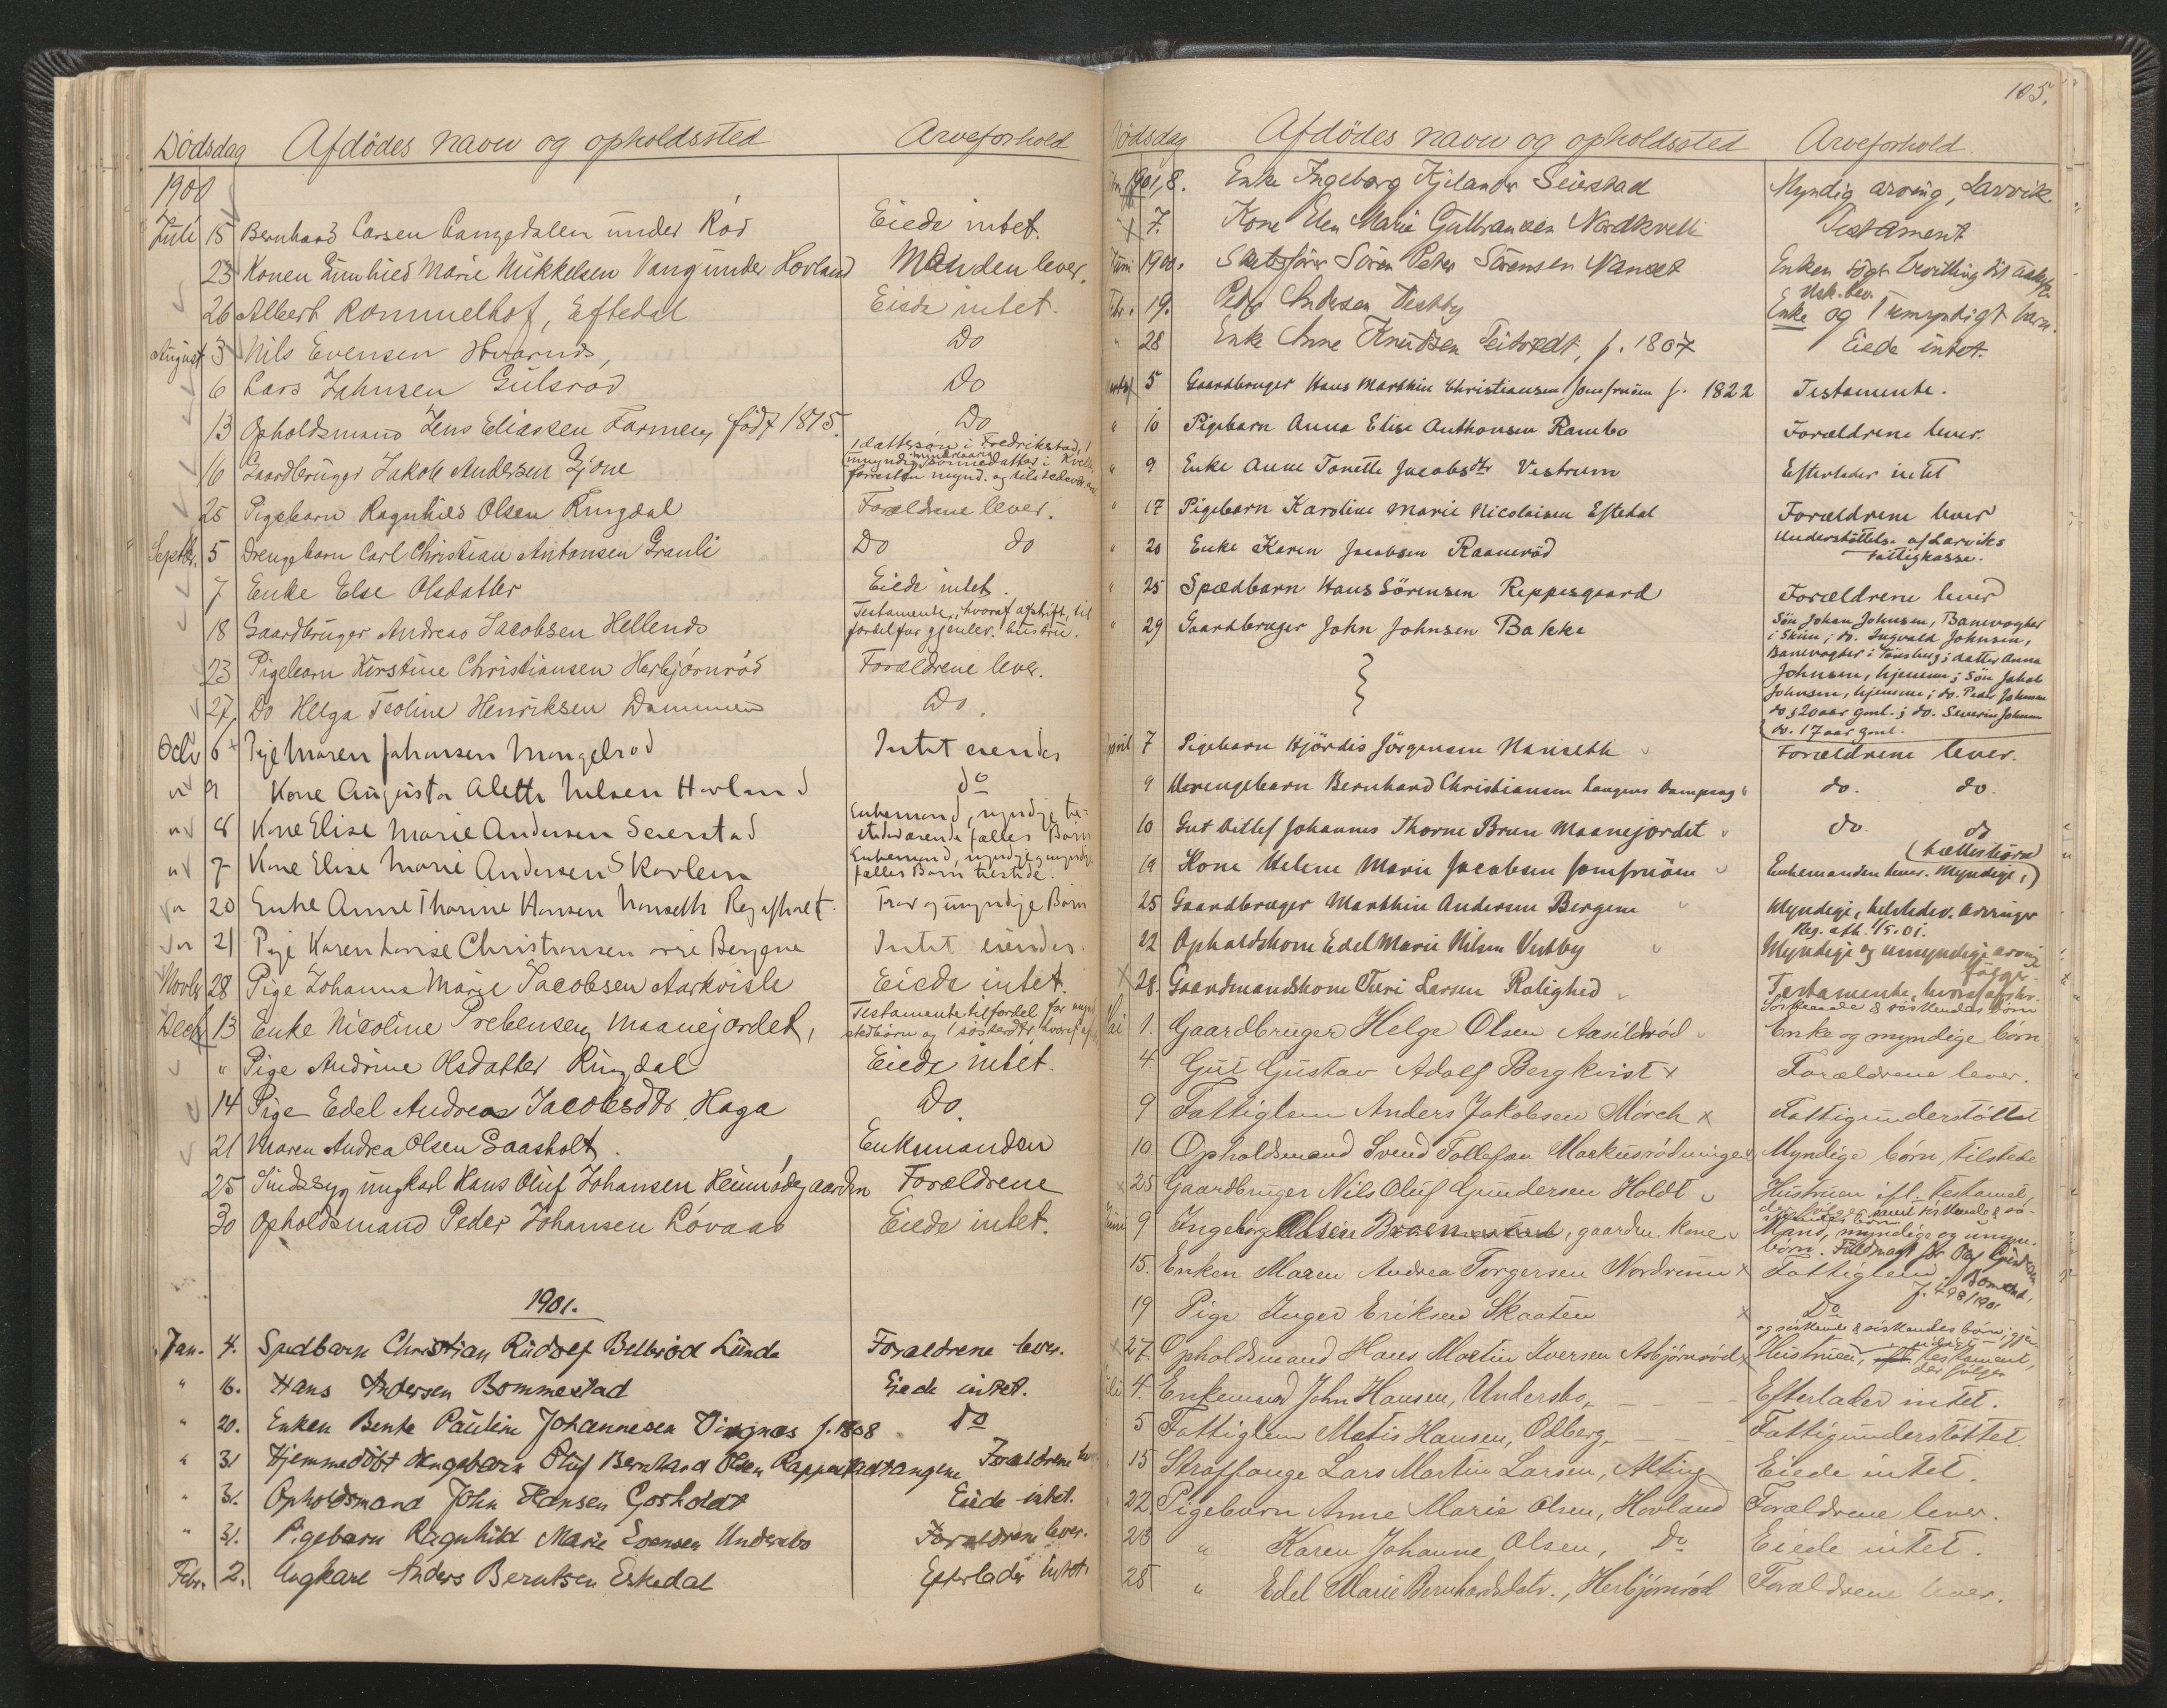 Dödsdag Afdödes navn og opholdssted Arveforhold
1900
Juli 15 Bernhard Larsen Langedalen under Röd Eiede intet.
23 Konen Marie Mikkelsen Vang under Hovland Manden lever.
26 Albert Rommelhof, Eftedal Eiede intet.
August 3 Nils Evensen Hvarnes, Do
6 Lars Jahnsen Gulsröd Do
13 Opholdsmand Jens Eliassen Farmen, född 1815. Do
16 Gaardbruger Jakob Andersen Gjone 1 dattersön i Fredrikstad, 1 umyndig mindreaarig sönnedatter i Kvelle, forresten mynd. og tilstedevær.
25 Pigebarn Ragnhild Olsen Ringdal Forældrene lever.
Septbr. 5 Drengebarn Carl Christian Antonsen Granli Do do
7 Enke Else Olsdatter Eiede intet.
18 Gaardbruger Andreas Jacobsen Hellends Testamente, hvoraf afskrift, til fordel for gjenlev. hustru.
23 Pigebarn Kirstine Christiansen Herbjörnröd Forældrene lever.
27. Do Helga Teoline Henriksen Dammen Do.
Octbr 6 Pige Maren Johansen Mangelrød Intet eiendes
" 9 Kone Augusta Aletta Nilsen Hovland do
" 8 Kone Elise Marie Andersen Seierstad Enkemand, myndige tilstedeværende fælles Børn
" 7 Kone Elise Marie Andersen Skarlem Enkemand, myndige og umyndige fælles Børn tilstede.
" 20 Enke Anne Thorine Hansen Nanseth umyndige Børn
" 21 Pige Karen Lovise Christiansen Bergene Intet eiendes.
Novbr 28 Pige Johanne Marie Jacobsen Aarkvisle Eiede intet.
Decbr 13 Enke Nicoline Prebensen, Maanejordet, Testamente til fordel for
" Pige Andrine Olsdatter Ringdal Eiede intet.
14 Pige Edel Andrea Jacobsdtr. Haga Do
21 Maren Andrea Olsen Gaasholt. Enkemanden
25 Sindssyg ungkarl Hans Oluf Johansen Heimrödgaarden Forældrene
30 Opholdsmand Peder Johansen Lövaas Eiede intet.
1901.
Jan. 4. Spedbarn Christian Rudolf Bellröd Lunde Forældrene lever.
" 16. Hans Andersen Bommestad Eiede intet.
" 20. Enken Bente Pauline Johannesen Vingnæs f. 1808 do
" 31 Hjemmedöbt drengebarn Oluf Bernhard Olsen Forældrene
" 31. Opholdsmand John Hansen Gosholdt Eiede intet.
" 31. Pigebarn Ragnhild Marie Evensen Undersbo Forældrene lever.
Febr. 2. Ungkarl Anders Berntsen Eskedal Efterlader intet.
105.
Dödsdag Afdödes navn og opholdssted Arveforhold
1901, 8. Enke Ingeborg Kjelander Seiestad Myndig arving, Larvik.
7. Kone Elen Marie Gulbransen Nordkvelle Testament
Juni 1900. Sören Peter Sörensen Nanset Enken
Febr. 19. Peder Andersen Vestby Enke og 1 umyndigt barn.
" 28 Enke Anne Knudsen Teitvedt, f. 1807 Eiede intet.
5 Gaardbruger Hans Marthin Christiansen Jomfruöen f. 1822 Testamente.
" 10 Pigebarn Anna Elise Anthonsen Rambo Forældrene lever.
" 9 Enke Anne Tonette Jacobsdtr Vestrum Efterlader intet
" 17 Pigebarn Karoline Marie Nicolaisen Eftedal Forældrene lever
" 20 Enke Karen Jacobsen Raaneröd Understöttelse af Larviks Fattigkasse.
" 25 Spædbarn Hans Sörensen Reppesgaard Forældrene lever
" 29 Gaardbruger John Johnsen Bakke Sön Johan Johnsen, Banevogter
i Skien; do. Ingvald Johnsen,
Banevogter i Tönsberg; datter Anna
Johnsen, hjemme; Sön Jakob
Johnsen, hjemme; do. Peder Johnsen
do, 20 aar gml.; do. Severin Johnsen
do. 17 aar gml.
April 7 Pigebarn Hjördis Jörgensen Nanseth Forældrene lever.
9 Drengebarn Bernhard Christiansen Langums Dampsag do. do.
10 Gut Detlef Johannes Thorne Brun Maanejordet do. do
19 Kone Helene Marie Jacobsen Jomfruöen Enkemanden lever. Myndige,
25 Gaardbruger Marthin Andersen Bergene Myndige, tilstedev. arvinger
22 Opholdskone Edel Marie Nilsen Vestby Myndige og umyndige arving
28. Gaardmandskone Turi Larsen Rolighed Testamente, hvoraf afskr. fölger. Söskende & söskendes börn
Mai 1. Gaardbruger Helge Olsen Aasildröd Enke og myndige börn
4. Gut Gustav Adolf Bergkvist x Forældrene lever.
9 Fattiglem Anders Jakobsen Mörch x Fattigunderstöttet
10 Opholdsmand Svend Tollefsen Markusrödningen Myndige börn, tilstede
x 25 Gaardbruger Nils Oluf Gundersen Holdt Hustruen ifl. testament,
Juni 9 Ingeborg Olsen Bommestad, gaardm. kone Mand, myndige og umyn. börn.
15. Enken Maren Andrea Torgersen Nordrum x Fattiglem
19 Pige Inger Eriksen Skaaten x Do
x 27. Opholdsmand Hans Martin Iversen Asbjörnröd x Hustruen, testament, der fölger og söskende & söskendes börn
Juli 4. Enkemand John Hansen, Undersbo, Efterlader intet.
5 Fattiglem Matis Hansen, Odberg, Fattigunderstöttet.
15 Straffange Lars Martin Larsen, Eiede intet.
22. Pigebarn Anne Marie Olsen, Hovland Forældrene lever.
23 " Karen Johanne Olsen, Do Eiede intet.
28 " Edel Marie Bernhardsdatr., Herbjörnröd Forældrene lever.